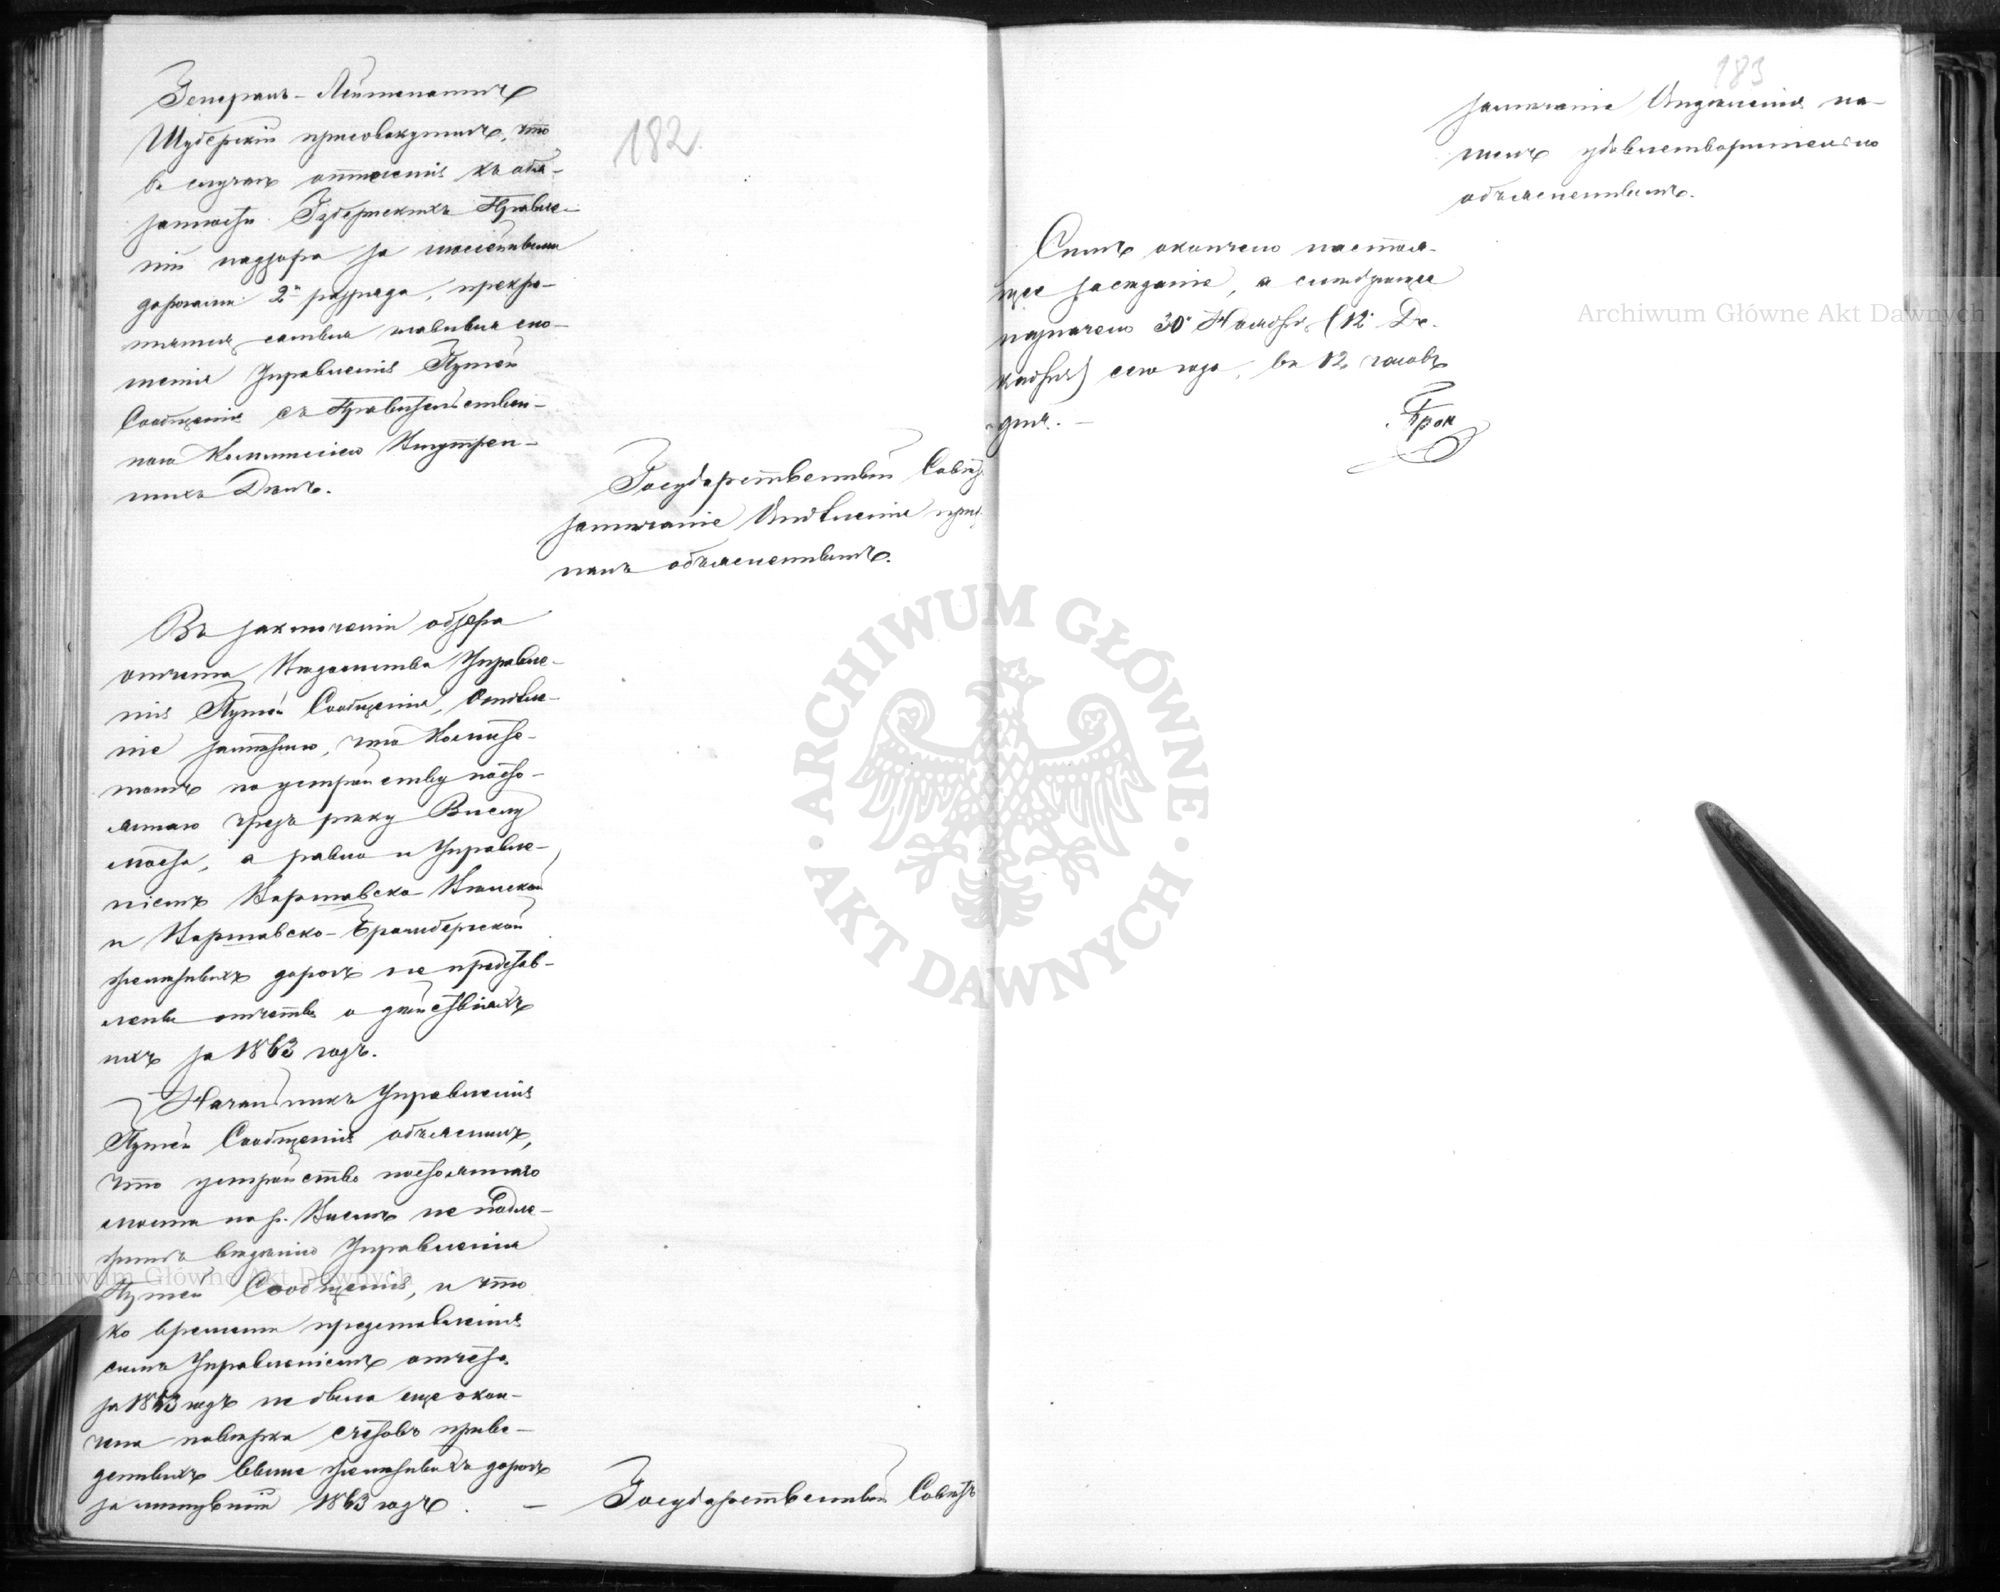 182
Генералъ-Лейтенантъ
Шуберскій присовокупилъ, что
въ случаѣ отнесенія къ обя-
занности Губернскихъ Правле-
ній надзора за шоссейными
дорогами 2го разряда, прекра-
тятся самыя главныя сно-
шенія Управленія Путей
Сообщенія съ Правительствен-
ною Коммисіею Внутрен-
нихъ Дѣлъ.
Государственный Совѣтъ
замѣчаніе Отдѣленія при-
налъ объясненнымъ.
Въ заключеніи обзора
отчета Вѣдомства Управле-
нія Путей Сообщенія, Отдѣле-
ніе замѣтило, что Комите-
томъ по устройству посто-
яннаго чрезъ рѣку Вислу
моста, а равно и Управле-
ніемъ Варшавско-Вѣнской
и Варшавско-Бромбергской
желѣзныхъ дорогъ не представ-
лены отчеты о дѣйствіяхъ
ихъ за 1863 годъ.
Начальникъ Управленія
Путей Сообщенія объяснилъ,
что устройство постояннаго
моста на р. Вислѣ не подле-
житъ вѣдѣнію Управленія
Путей Сообщенія, и что
ко времени представленія
симъ Управленіемъ отчета
за 1863 годъ не была еще окон-
чена повѣрка счетовъ приве-
денныхъ выше желѣзныхъ дорогъ
за минувшій 1863 годъ. —
Государственный Совѣтъ
183
замѣчаніе Отдѣленія на-
шелъ удовлетворительно
объясненнымъ.
Симъ окончено настоя-
щее засѣданіе, а слѣдующее
назначено 30го Ноября (12го Де-
кабря) сего года, въ 12 часовъ
дня. —
Archiwum Główne Akt Dawnych
ARCHIWUM GŁÓWNE AKT DAWNYCH
Archiwum Główne Akt Dawnych